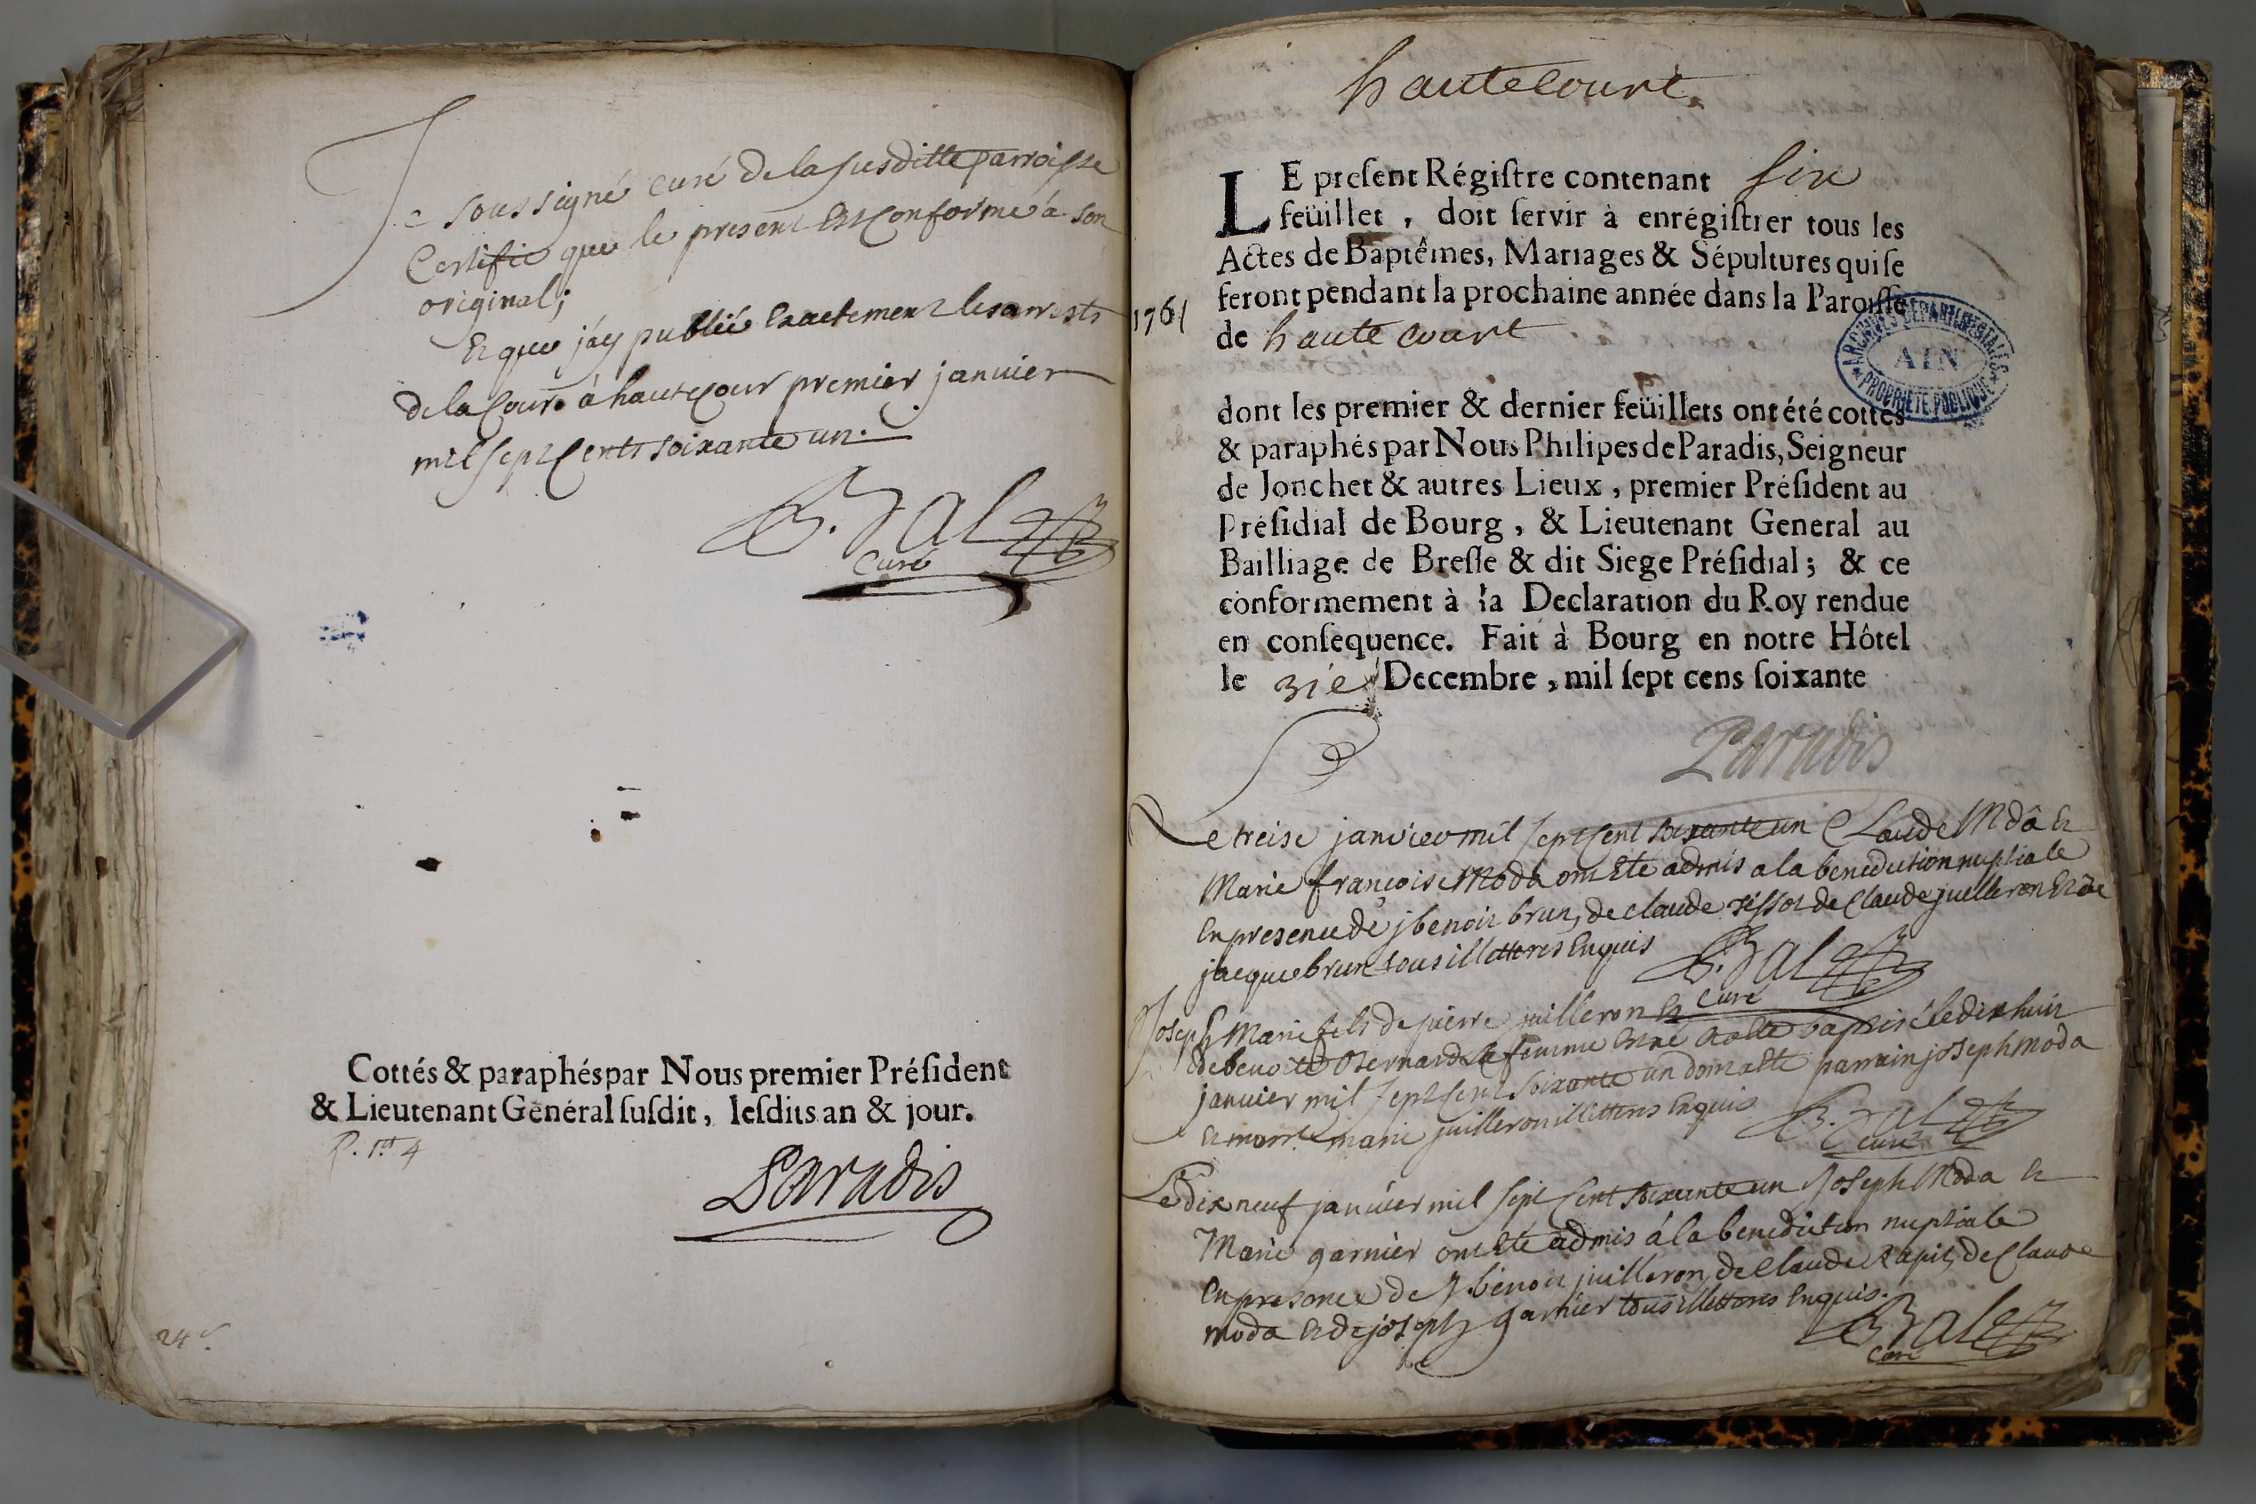 Je soussigné curé de la susditte parroisse
Certifie que le present Est Conforme a son
original;
Et que j'ay publié Exactement les arrests
de la Cour. à hautecour premier janvier
mil sept Cents soixante un.
Curé
Cottés & paraphés par Nous premier Préſident
& Lieutenant Général ſuſdit, leſdits an & jour.
Paradis
24
hautecourt
LE preſent Régiſtre contenant six
feüillet, doit ſervir à enrégiſtrer tous les
Actes de Baptêmes, Mariages & Sépultures qui ſe
feront pendant la prochaine année dans la Paroiſſe
1761
de haute court
ARCHIVES DEPARTEMENTALES
AIN
PROPRIETE PUBLIQUE
dont les premier & dernier feüillets ont été cottés
& paraphés par Nous Philipes de Paradis, Seigneur
de Jonchet & autres Lieux, premier Préſident au
Préſidial de Bourg, & Lieutenant General au
Bailliage de Breſſe & dit Siege Préſidial; & ce
conformement à la Declaration du Roy rendue
en conſequence. Fait à Bourg en notre Hôtel
le 31e Decembre, mil ſept cens ſoixante
Paradis
Le treise janvier mil sept Cent soixante un Claude Moda Et
Marie françoise Moda ont Eté admis a la benediction nuptiale
En presence de j benoit brun, de claude tissot de Claude juilleron Et de
jacque brun tous illetterés Enquis
Curé
Joseph Marie fils de pierre juilleron Et
de benoite Bernard sa femme Est né Et a Eté baptisé le dix huit
janvier mil sept Cent soixante un dont a Eté parrain joseph moda
Et marr. marie juilleron illetterés Enquis
Curé
Le dix neuf janvier mil sept Cent soixante un Joseph Moda Et
Marie garnier ont Eté admis à la benediction nuptiale
En presence de j. benoit juilleron, de Claude de Claude
moda Et de joseph garnier tous illetterés Enquis.
Curé